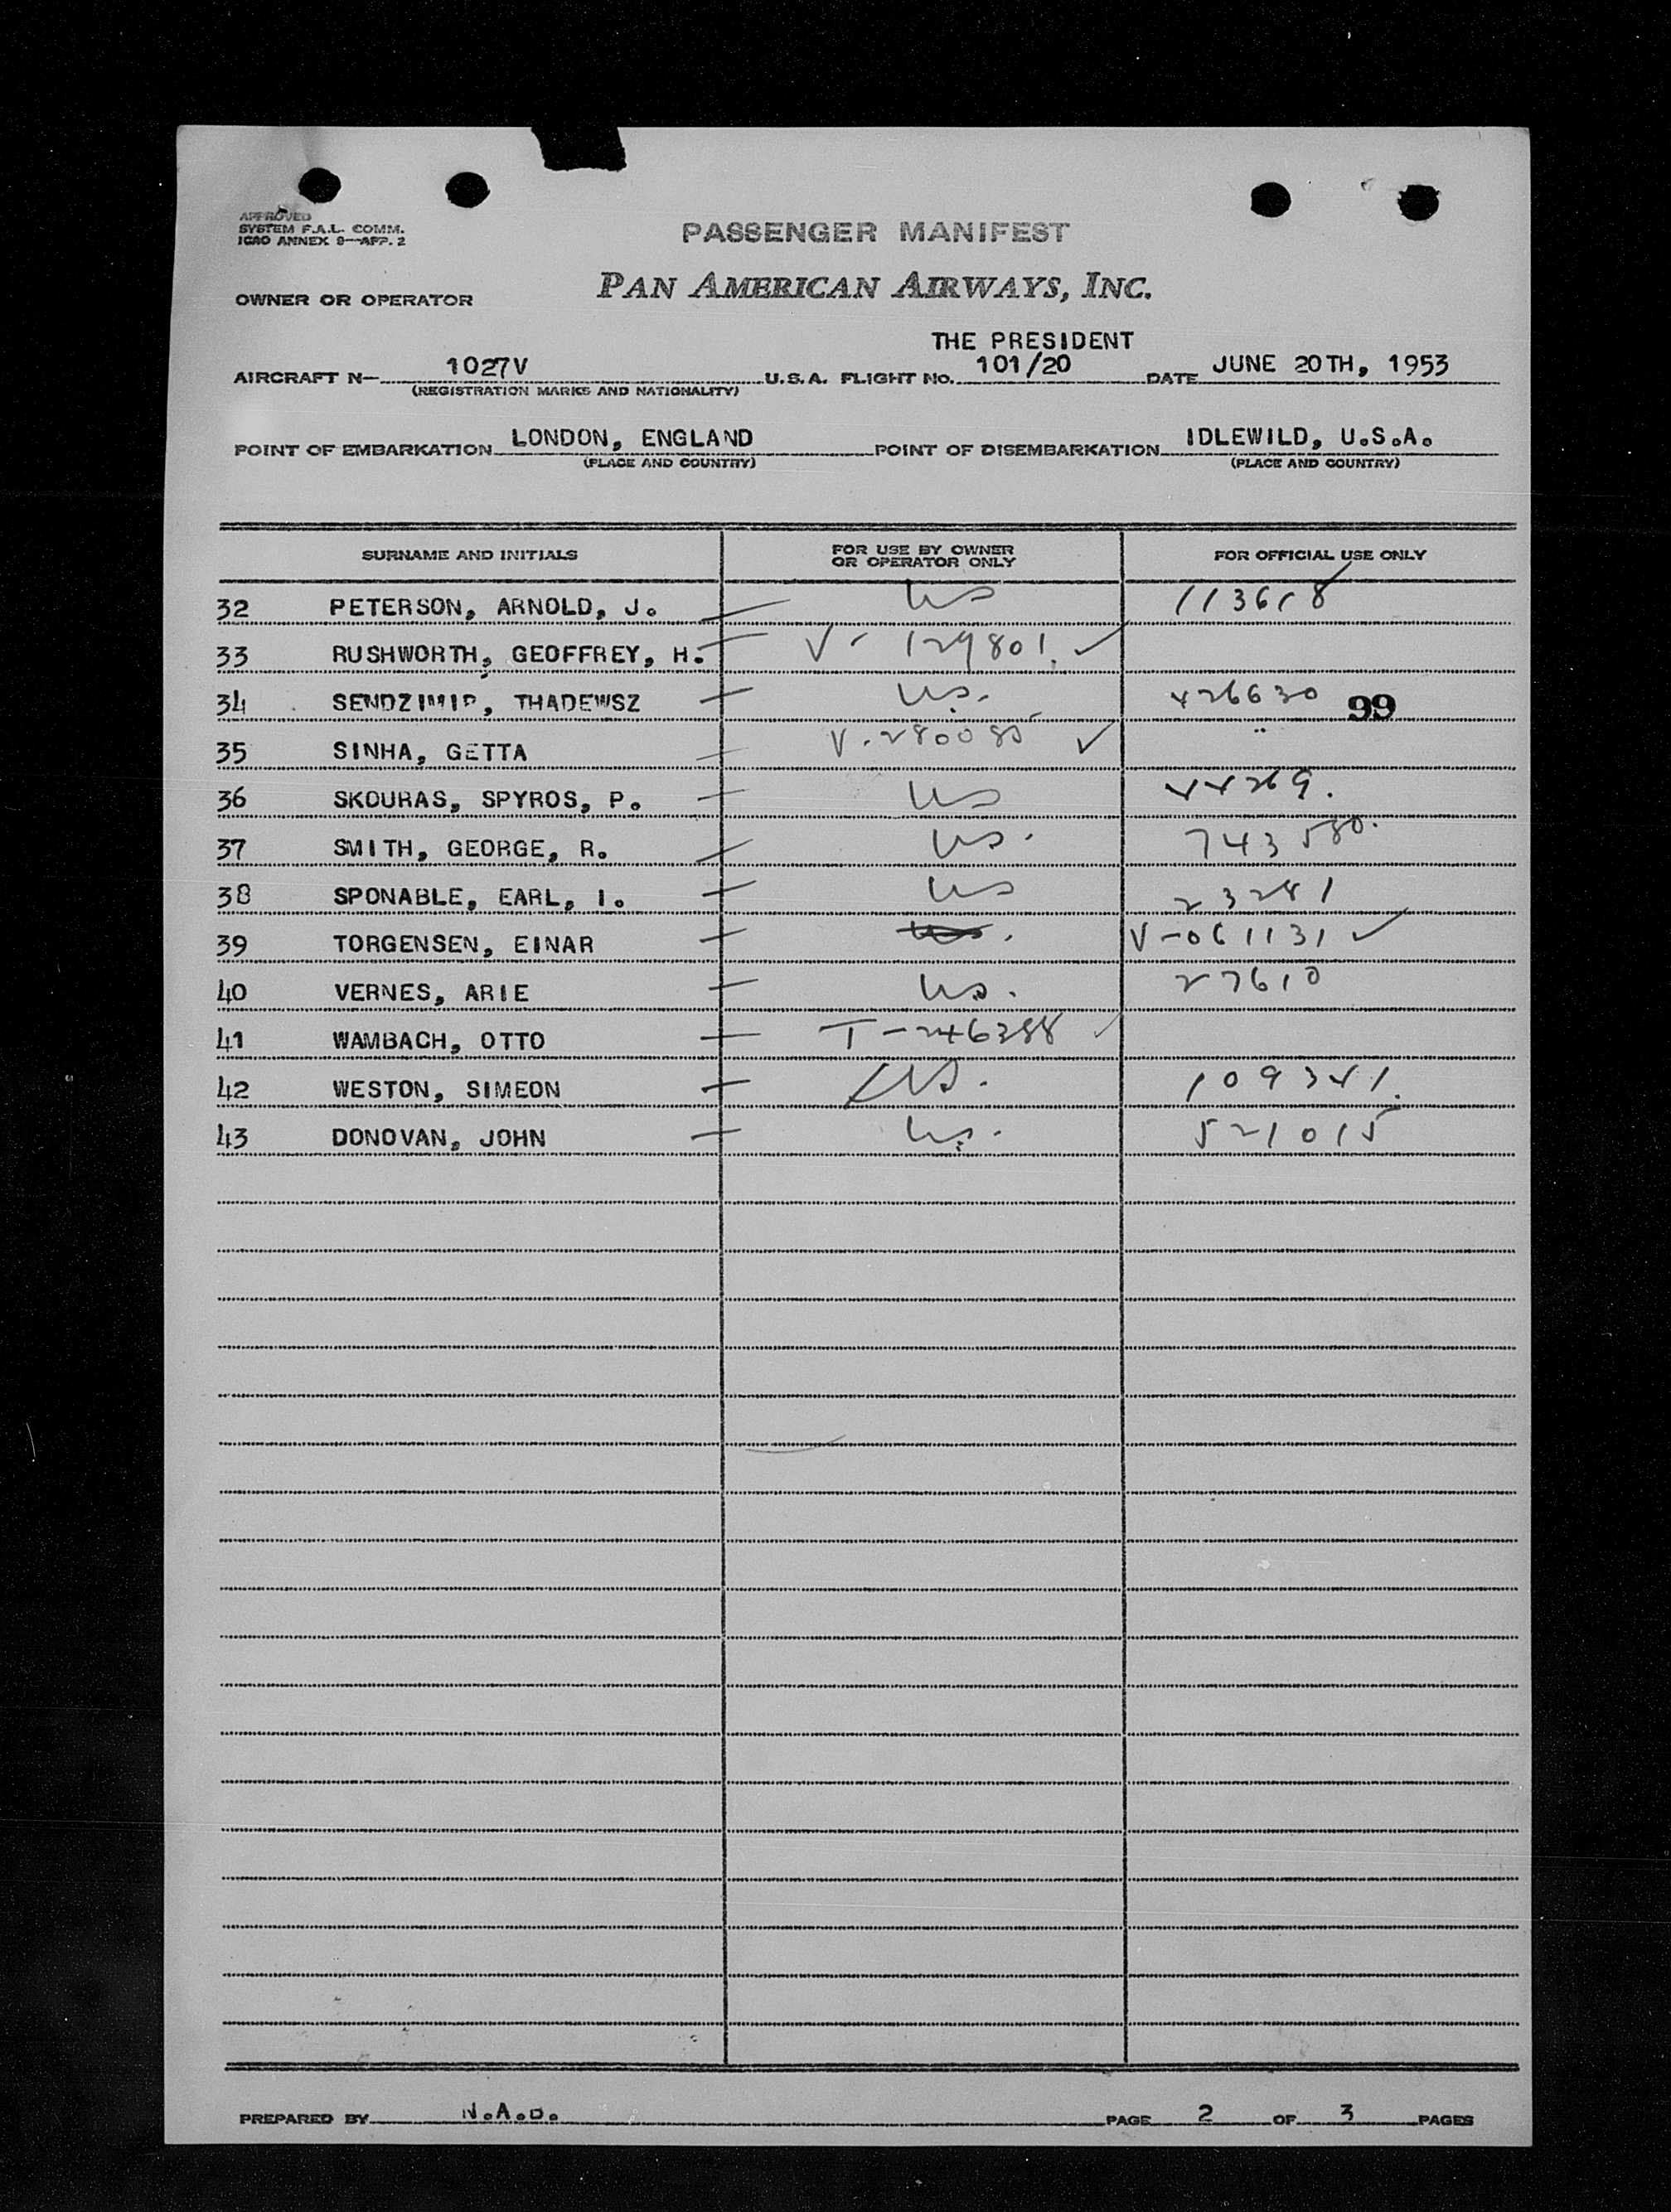 APPROVED
SYSTEM F.A.L. COMM.
ICAO ANNEX 9—APP. 2
PASSENGER MANIFEST
OWNER OR OPERATOR PAN AMERICAN AIRWAYS, INC.
THE PRESIDENT
AIRCRAFT N— 1027V U.S.A. FLIGHT NO. 101/20 DATE JUNE 20TH, 1953
(REGISTRATION MARKS AND NATIONALITY)
POINT OF EMBARKATION LONDON, ENGLAND POINT OF DISEMBARKATION IDLEWILD, U.S.A.
(PLACE AND COUNTRY) (PLACE AND COUNTRY)
SURNAME AND INITIALS FOR USE BY OWNER OR OPERATOR ONLY FOR OFFICIAL USE ONLY
32 PETERSON, ARNOLD, J. US 113618
33 RUSHWORTH, GEOFFREY, H. V- 129801. ✓
34 SENDZIMIR, THADEWSZ US. 426630 99
35 SINHA, GETTA V-280085 ✓
36 SKOURAS, SPYROS, P. US 44269.
37 SMITH, GEORGE, R. US. 743580.
38 SPONABLE, EARL, I. US 23281
39 TORGENSEN, EINAR US. V-061131 ✓
40 VERNES, ARIE US. 27610
41 WAMBACH, OTTO T-246388 ✓
42 WESTON, SIMEON US. 109341.
43 DONOVAN, JOHN US. 521015
PREPARED BY N.A.D. PAGE 2 OF 3 PAGES